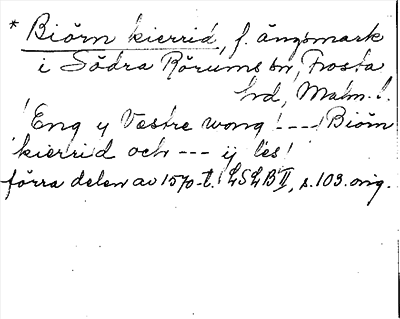 * Biörn kierrid, f. ängsmark
i Södra Rörums sn, Frosta
hd, Malm. l.
"Eng y Vestre wong" ---- "Biörn
kierrid och --- ij les"
förra delen av 1570-t. LSLB II, s. 103. orig.